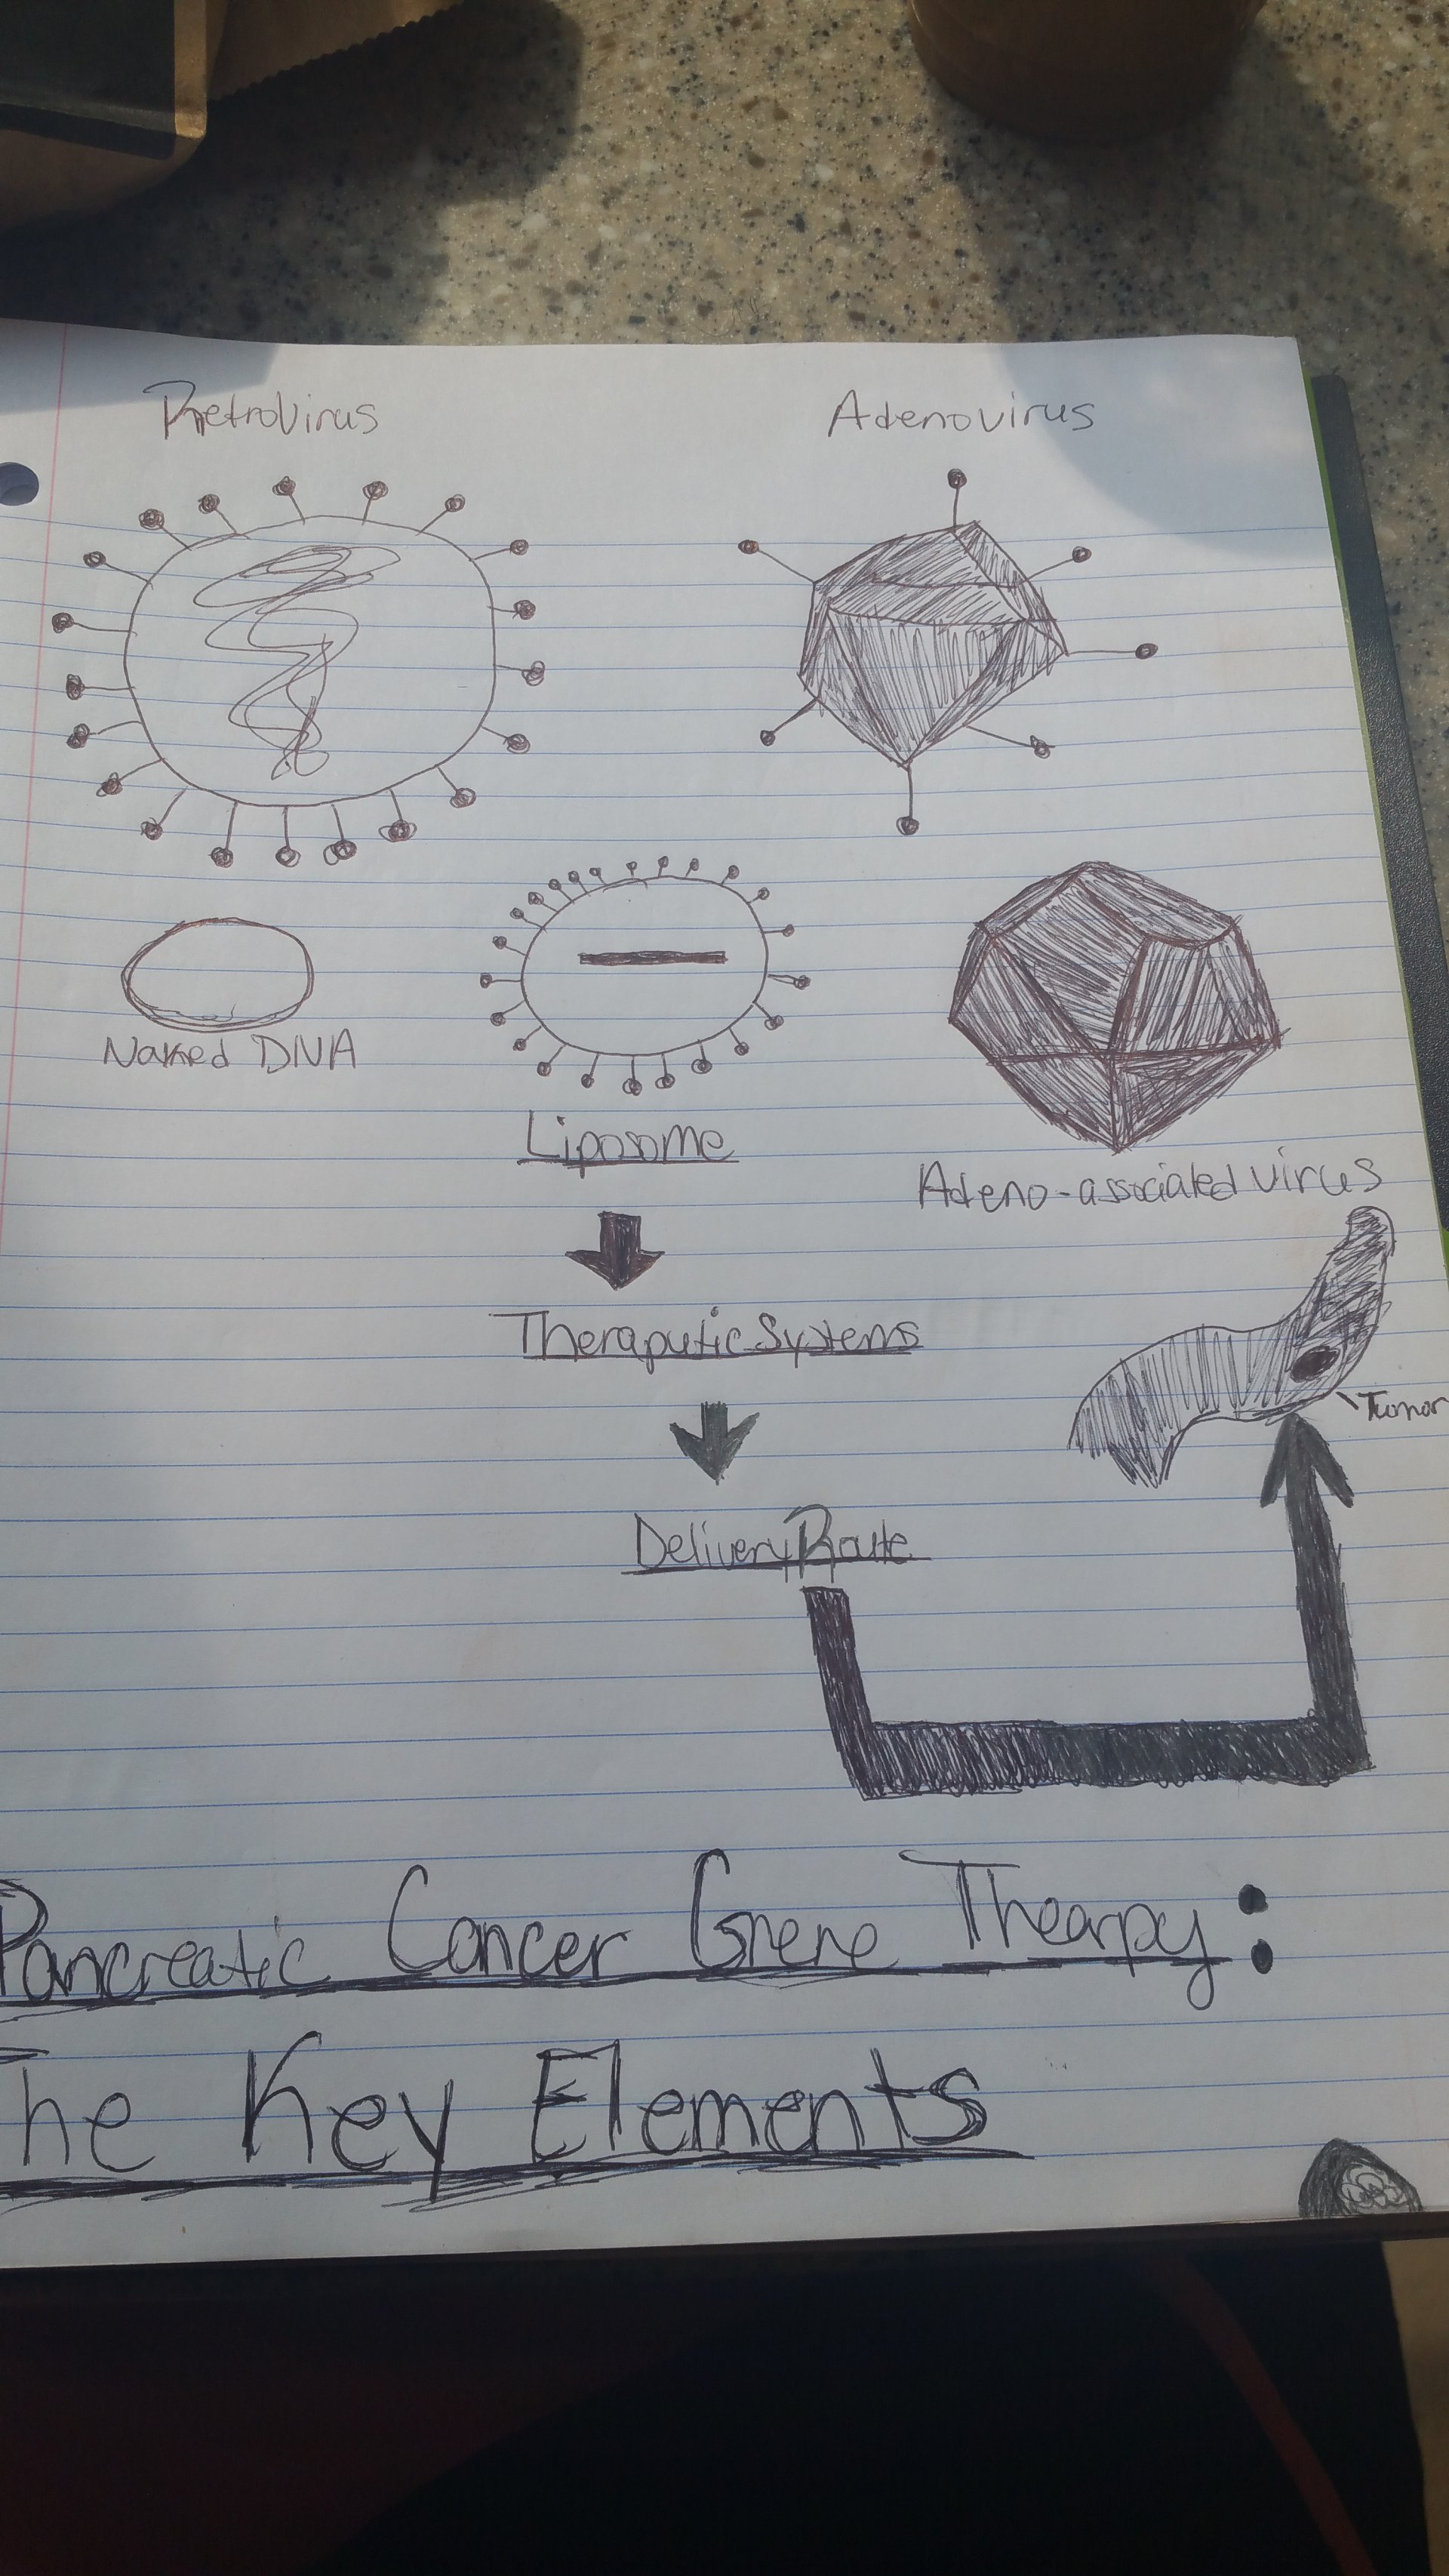 Retrovirus
Adenovirus
Naked DNA
Liposome
Adeno-associated virus
Theraputic Systems
Tumor
Delivery Route
Pancreatic Cancer Gene Thearpy:
The Key Elements